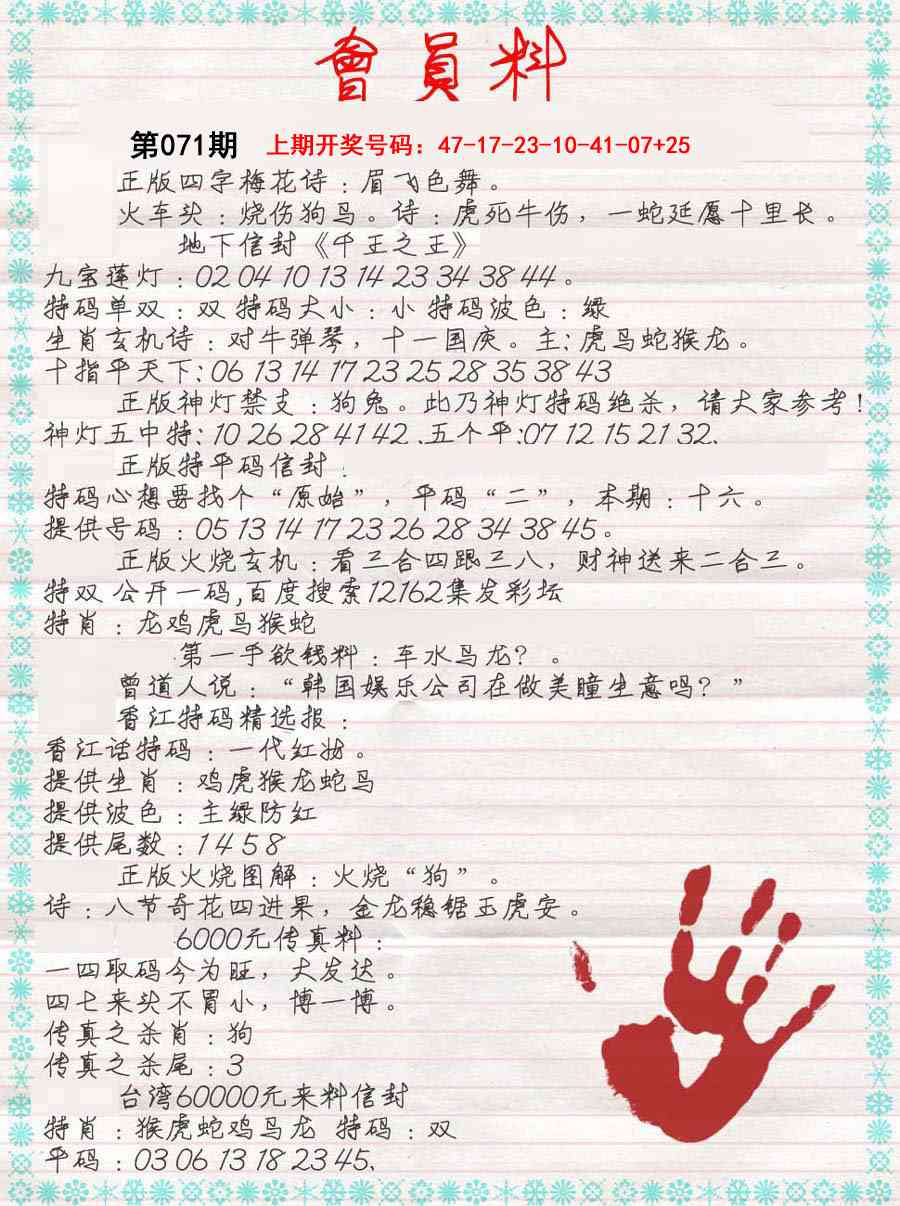 會員料
第071期 上期开奖号码：47-17-23-10-41-07+25
正版四字梅花诗：眉飞色舞。
火车头：烧伤狗马。诗：虎死牛伤，一蛇延愿十里长。
地下信封《千王之王》
九宝莲灯：02 04 10 13 14 23 34 38 44。
特码单双：双 特码大小：小 特码波色：绿
生肖玄机诗：对牛弹琴，十一国庆。主：虎马蛇猴龙。
十指平天下：06 13 14 17 23 25 28 35 38 43
正版神灯禁支：狗兔。此乃神灯特码绝杀，请大家参考！
神灯五中特：10 26 28 41 42 .五个平：07 12 15 21 32.
正版特平码信封：
特码心想要找个“原始”，平码“二”，本期：十六。
提供号码：05 13 14 17 23 26 28 34 38 45。
正版火烧玄机：看三合四跟三八，财神送来二合三。
特双 公开一码,百度搜索12162集发彩坛
特肖：龙鸡虎马猴蛇
第一手欲钱料：车水马龙？。
曾道人说：“韩国娱乐公司在做美瞳生意吗？”
香江特码精选报：
香江话特码：一代红妝。
提供生肖：鸡虎猴龙蛇马
提供波色：主绿防红
提供尾数：1 4 5 8
正版火烧图解：火烧“狗”。
诗：八节奇花四进果，金龙稳锯玉虎安。
6000元传真料：
一四取码今为旺，大发达。
四七来头不冒小，博一博。
传真之杀肖：狗
传真之杀尾：3
台湾60000元来料信封
特肖：猴虎蛇鸡马龙 特码：双
平码：03 06 13 18 23 45.